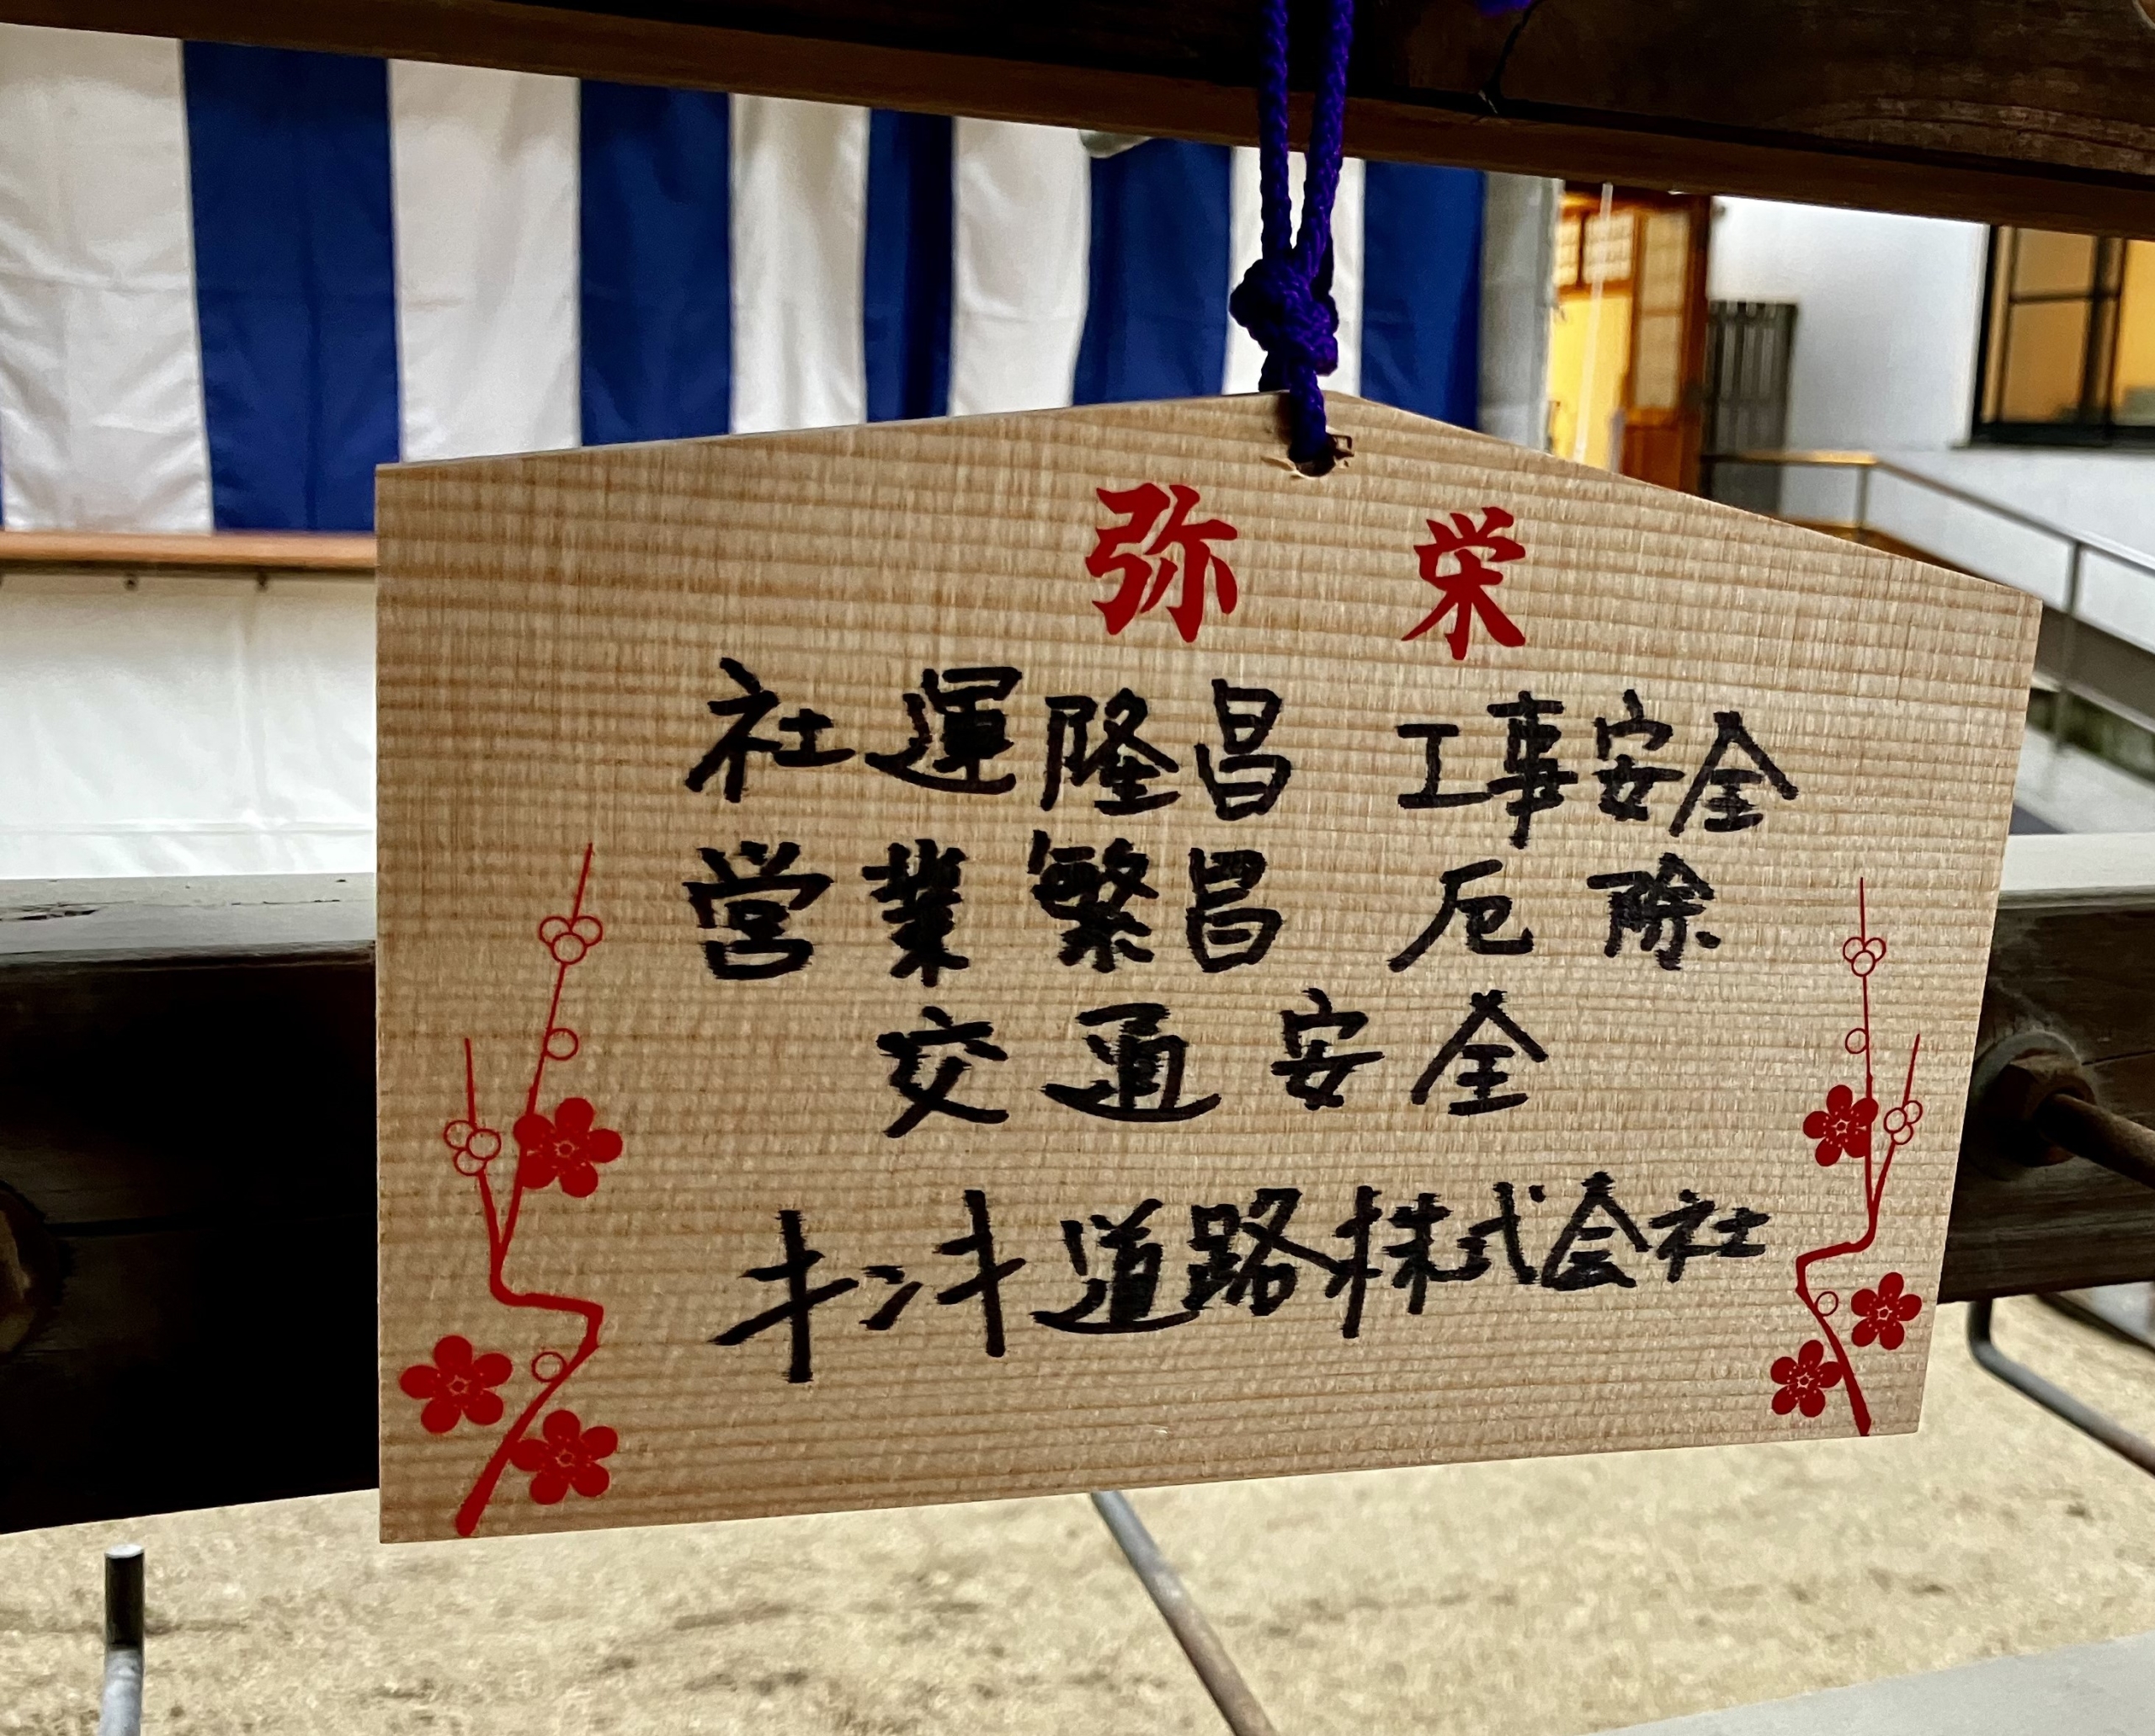 弥栄
社運隆昌 工事安全
営業繁昌 厄除
交通安全
キンキ道路株式会社